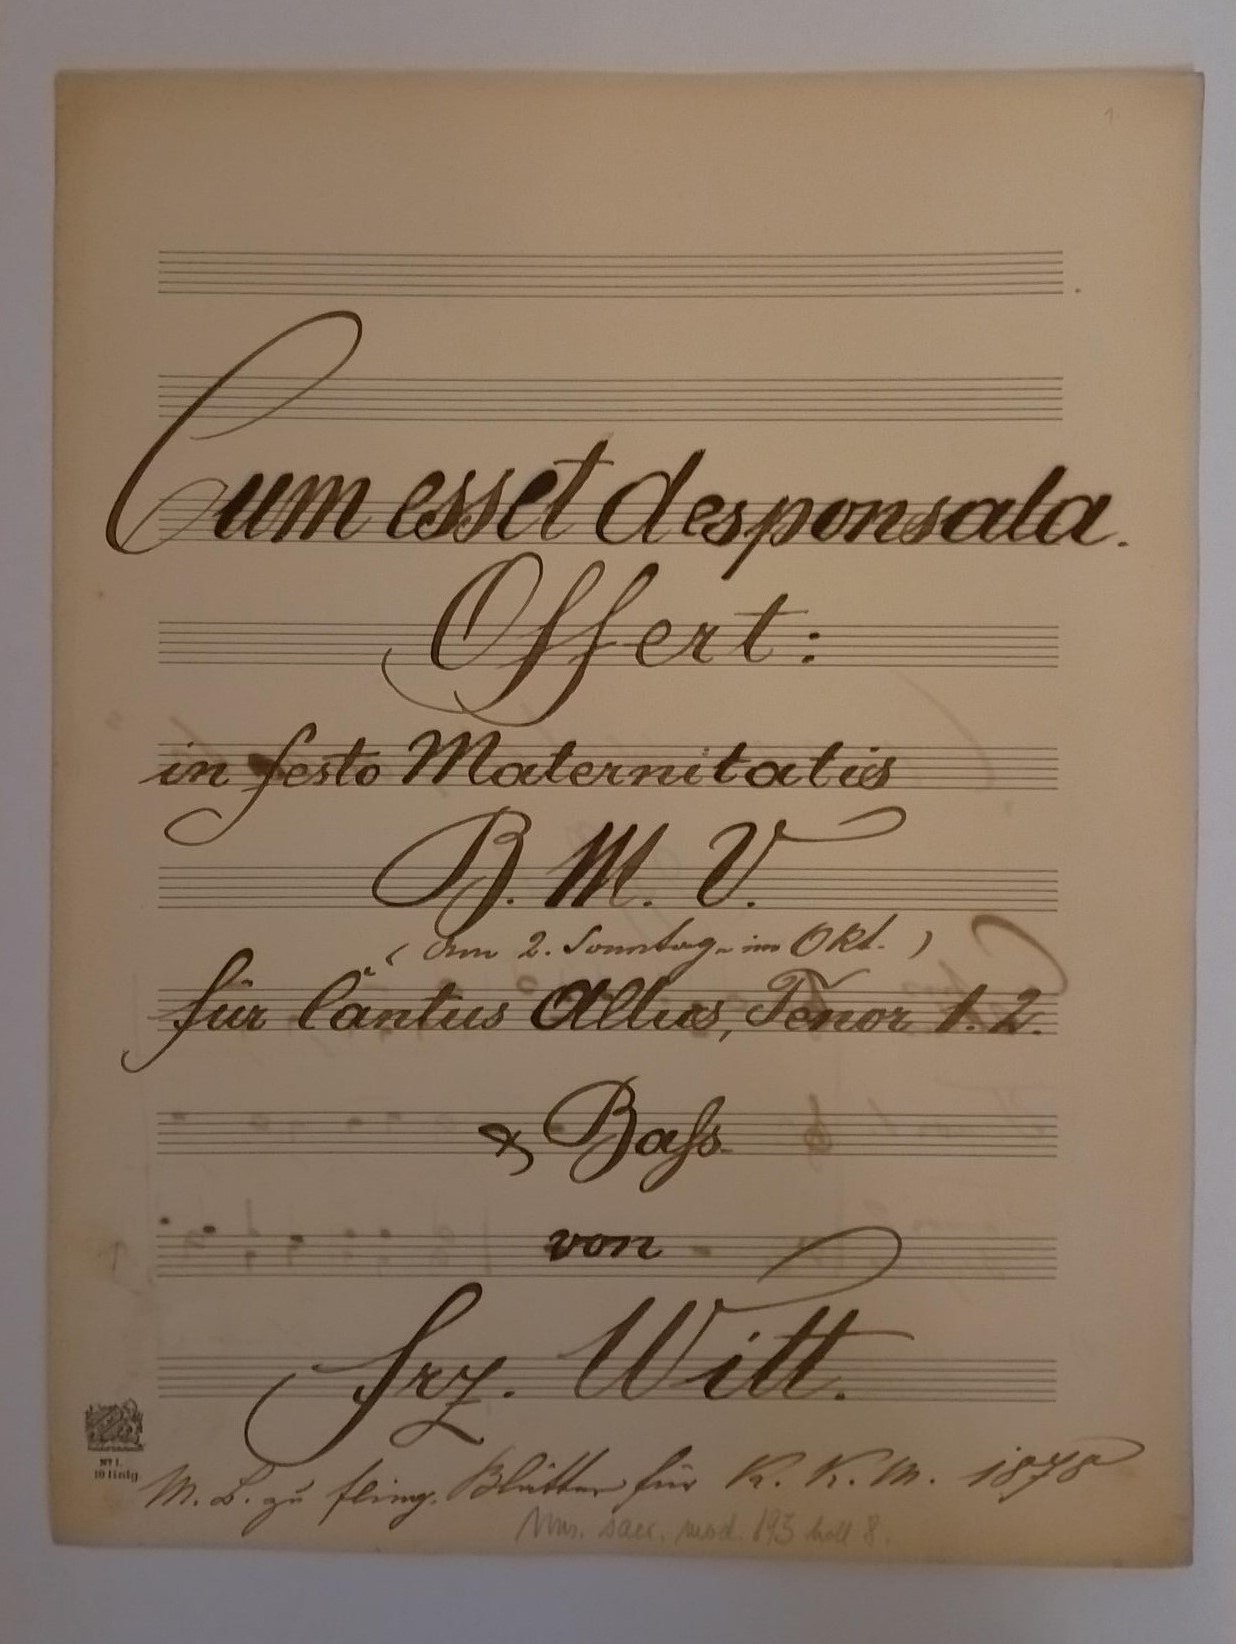 1.
Cum esset desponsata.
Offert:
in festo Maternitatis
B. M. V.
(am 2. Sonntag im Okt.)
für Cantus Altus, Tenor 1. 2.
& Bass
von
Frz. Witt.
No 1.
10 linig.
M. B. zu flieg. Blätter für K. K. M. 1878
Mus. sacr. mod. 193 8.